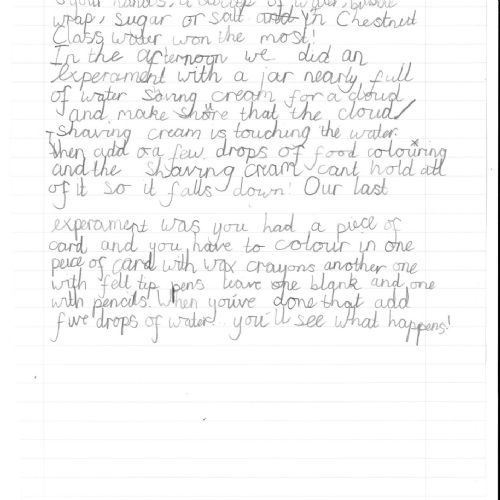 your hands, a bottle of water, bubble
wrap, sugar or salt and in Chestnut
Class water won the most!
In the afternoon we did an
experament with a jar nearly full
of water saving cream for a cloud
and make shore that the cloud/
shaving cream is touching the water.
Then add a few drops of food colouring
and the shaving cream cant hold all
of it so it falls down! Our last
experament was you had a piece of
card and you have to colour in one
peice of card with wax crayons another one
with felt tip pens leave one blank and one
with pencils. When you've done that add
five drops of water! you'll see what happens!